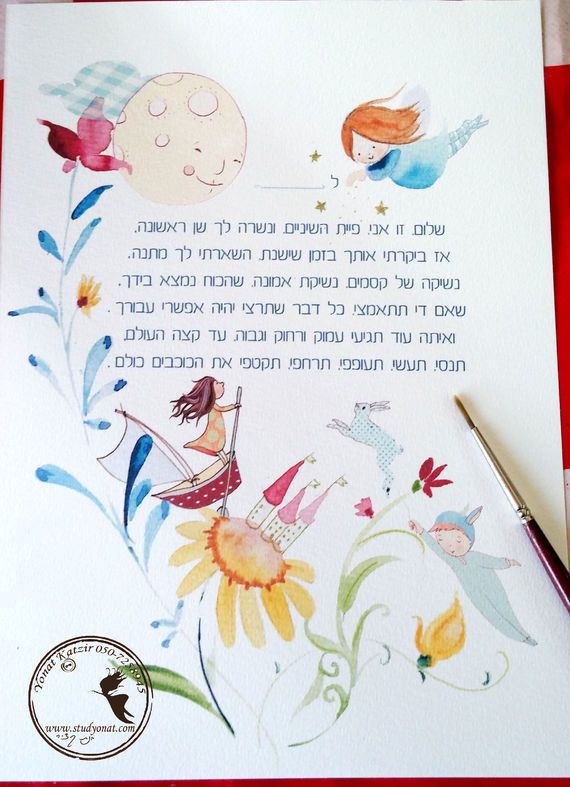 ל
שלום, זו אני, פיית השיניים, ונשרה לך שן ראשונה,
אז ביקרתי אותך בזמן שישנת, השארתי לך מתנה,
נשיקה של קסמים, נשיקת אמונה, שהכוח נמצא בידך,
שאם די תתאמצי, כל דבר שתרצי יהיה אפשרי עבורך.
ואיתה עוד תגיעי עמוק ורחוק וגבוה, עד קצה העולם,
תנסי, תעשי, תעופפי, תרחפי, תקטפי את הכוכבים כולם.
© Yonat Katzir
www.studyonat.com